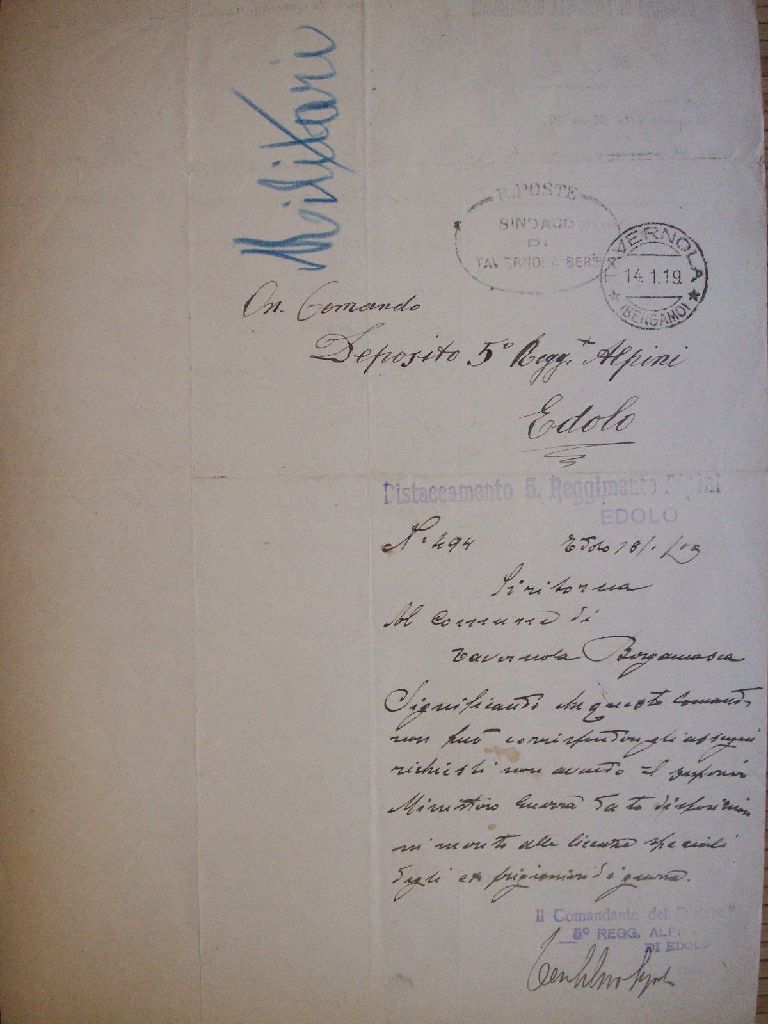 Militari
R. POSTE
SINDACO
DI
TAVERNOLA BERG
TAVERNOLA
14.1.19
(BERGAMO)
On. Comando
Deposito 5° Regg.t Alpini
Edolo
Distaccamento 5. Reggimento Alpini
EDOLO
N° 494 Edolo 18/1/19
Si ritorna
Al Comune di
Tavernola Bergamasca
Significando che questo Comando
non può corrispondere gli assegni
richiesti non avendo il superior
Ministero Guerra dato disposizioni
in merito alle licenze speciali
degli ex prigionieri di guerra.
Il Comandante del
5° REGG. ALPINI
DI EDOLO